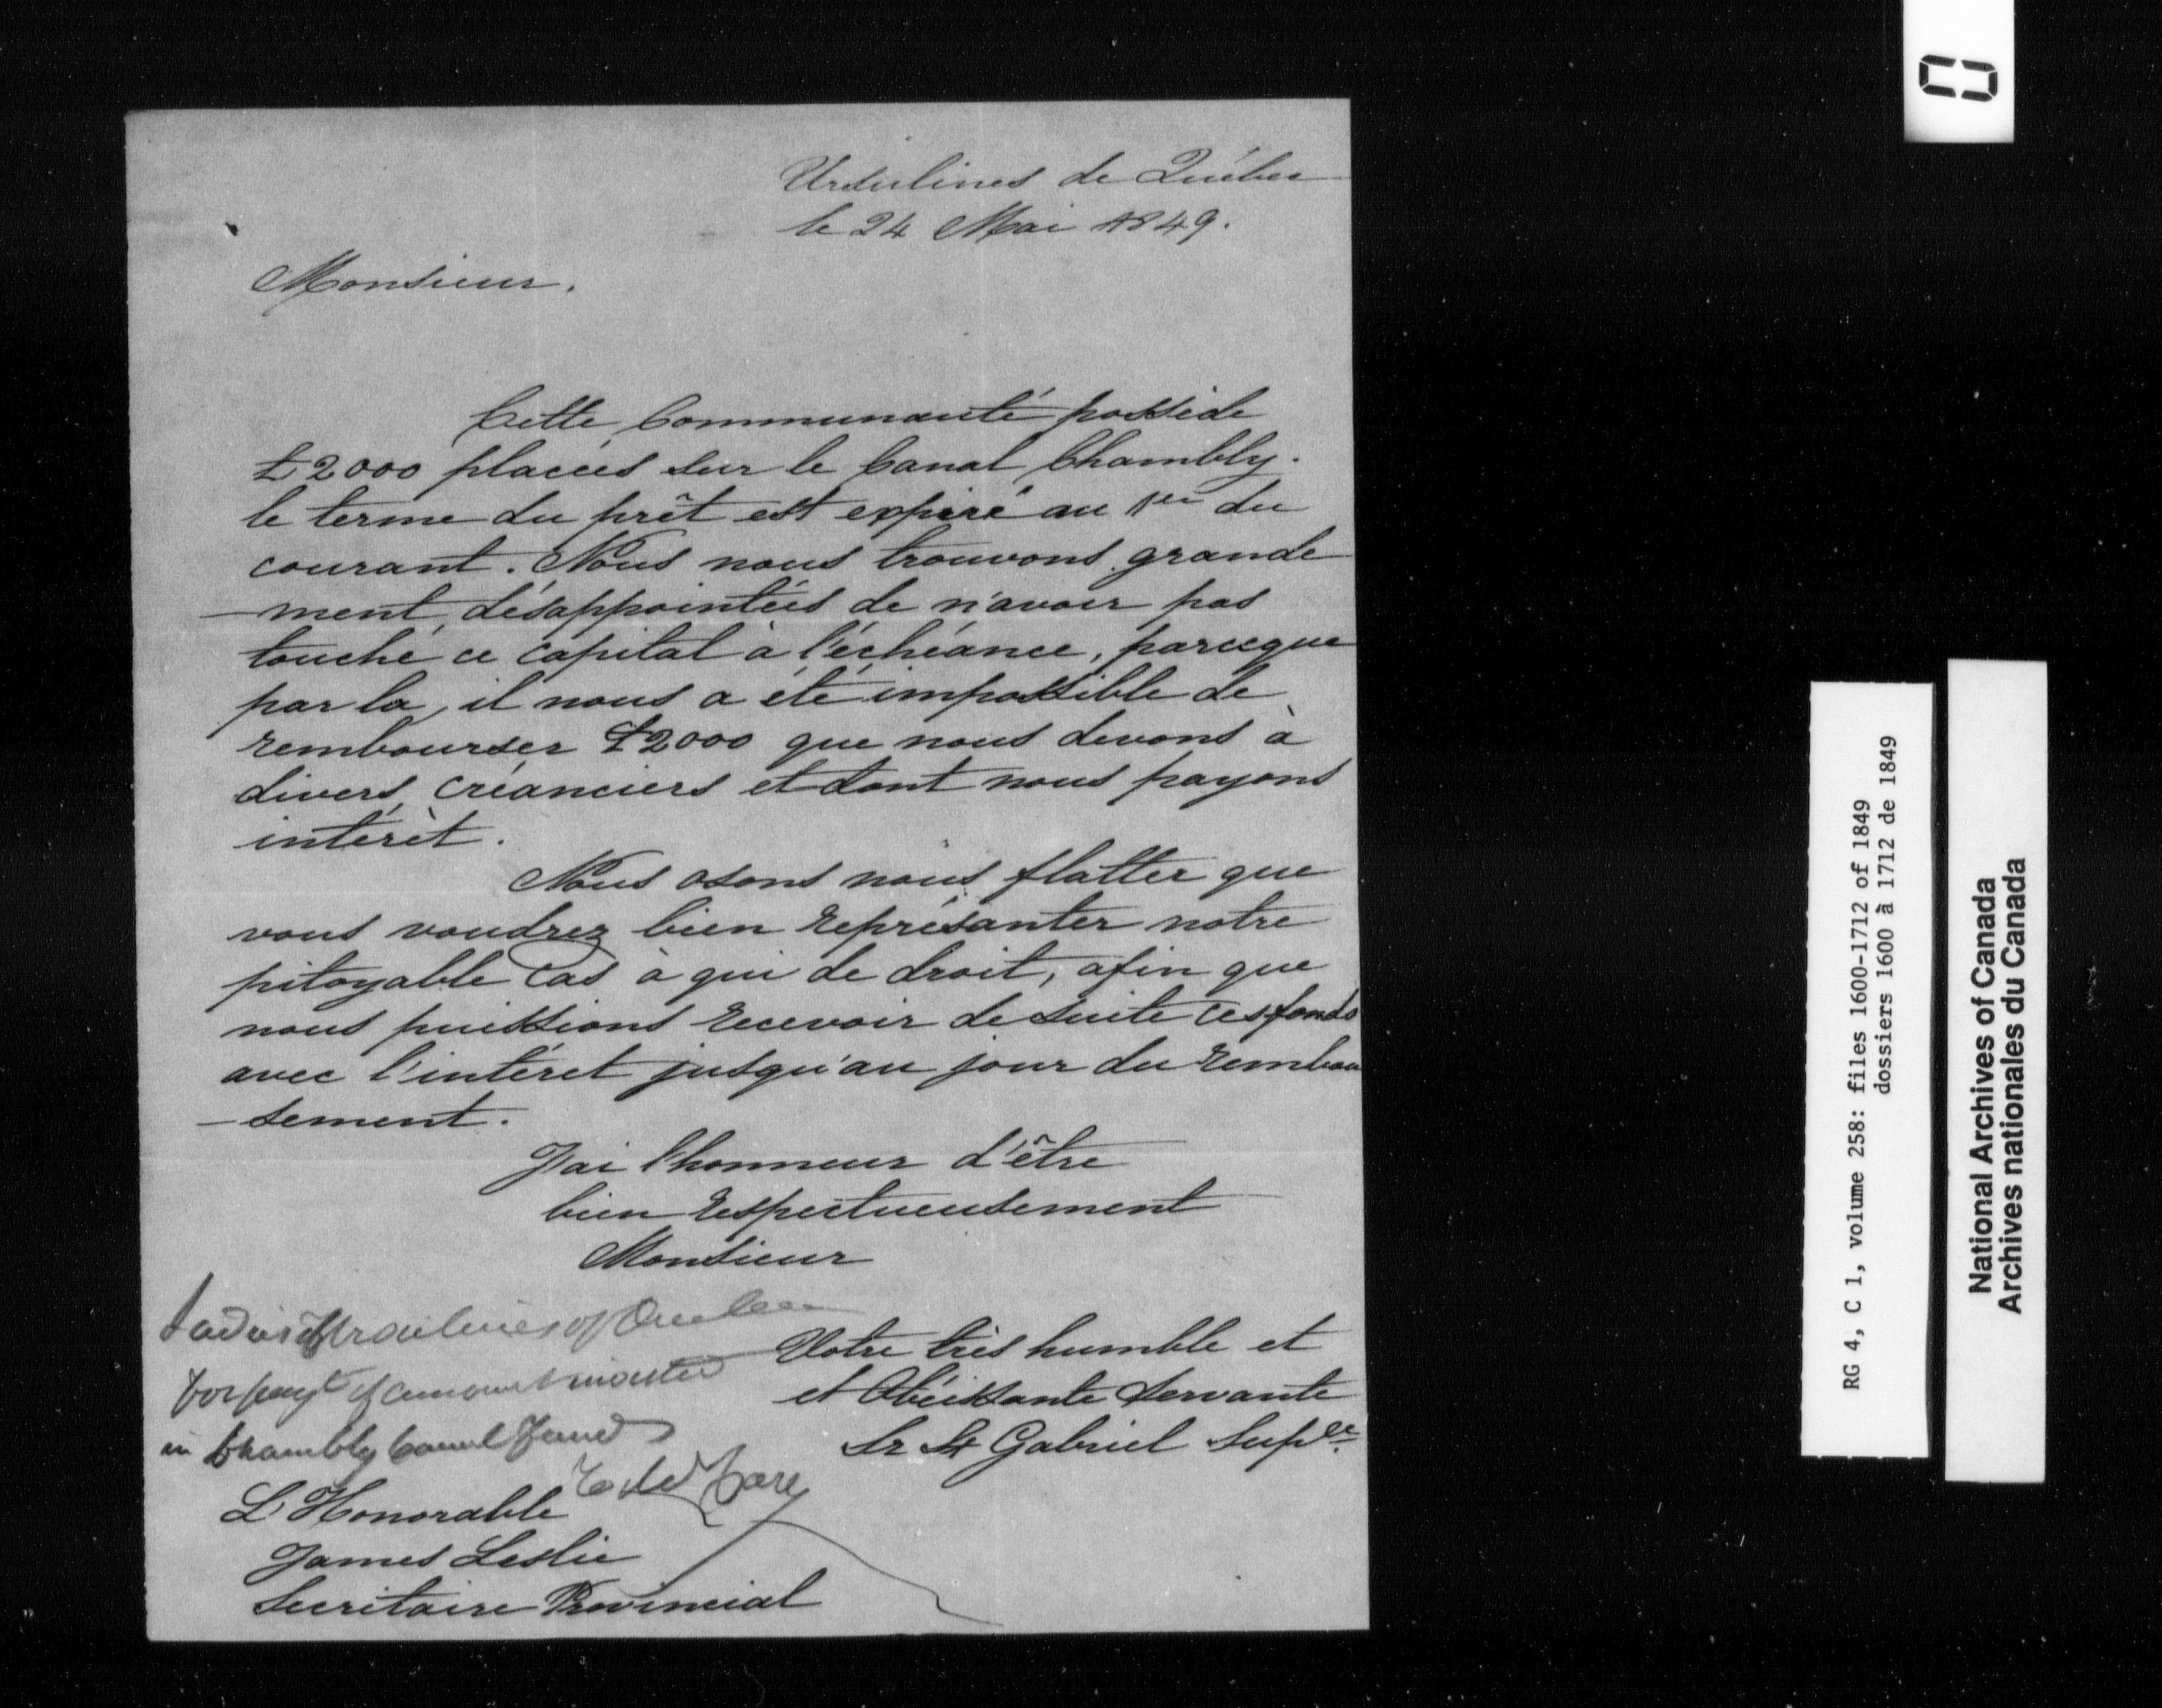 Ursulines de Québec
le 24 Mai 1849.
Monsieur.
Cette Communauté possède
£2000 placées sur le Canal Chambly.
le terme du prêt est expiré au 1er du
courant. Nous nous trouvons grande
-ment désappointées de n'avoir pas
touché ce capital à l'échéance, parceque
par la, il nous a été impossible de
rembourser £2000 que nous devons à
divers créanciers et dont nous payons
intérèt.
Nous osons nous flatter que
vous voudrez bien représanter notre
pitoyable cas à qui de droit, afin que
nous puissions recevoir de suite ces fonds
avec l'intéret jusqu'au jour du rembou
-sement.
J'ai l'honneur d'être
bien respectueusement
Monsieur
Votre très humble et
et Obéissante servante
Sr St Gabriel Supre
Ladies Ursulines of Quebec
for payt of amount invested
in Chambly Canal Fund
L'Honorable
James Leslie
Secrétaire Provincial
RG 4, C 1, volume 258: files 1600-1712 of 1849
dossiers 1600 à 1712 de 1849
National Archives of Canada
Archives nationales du Canada